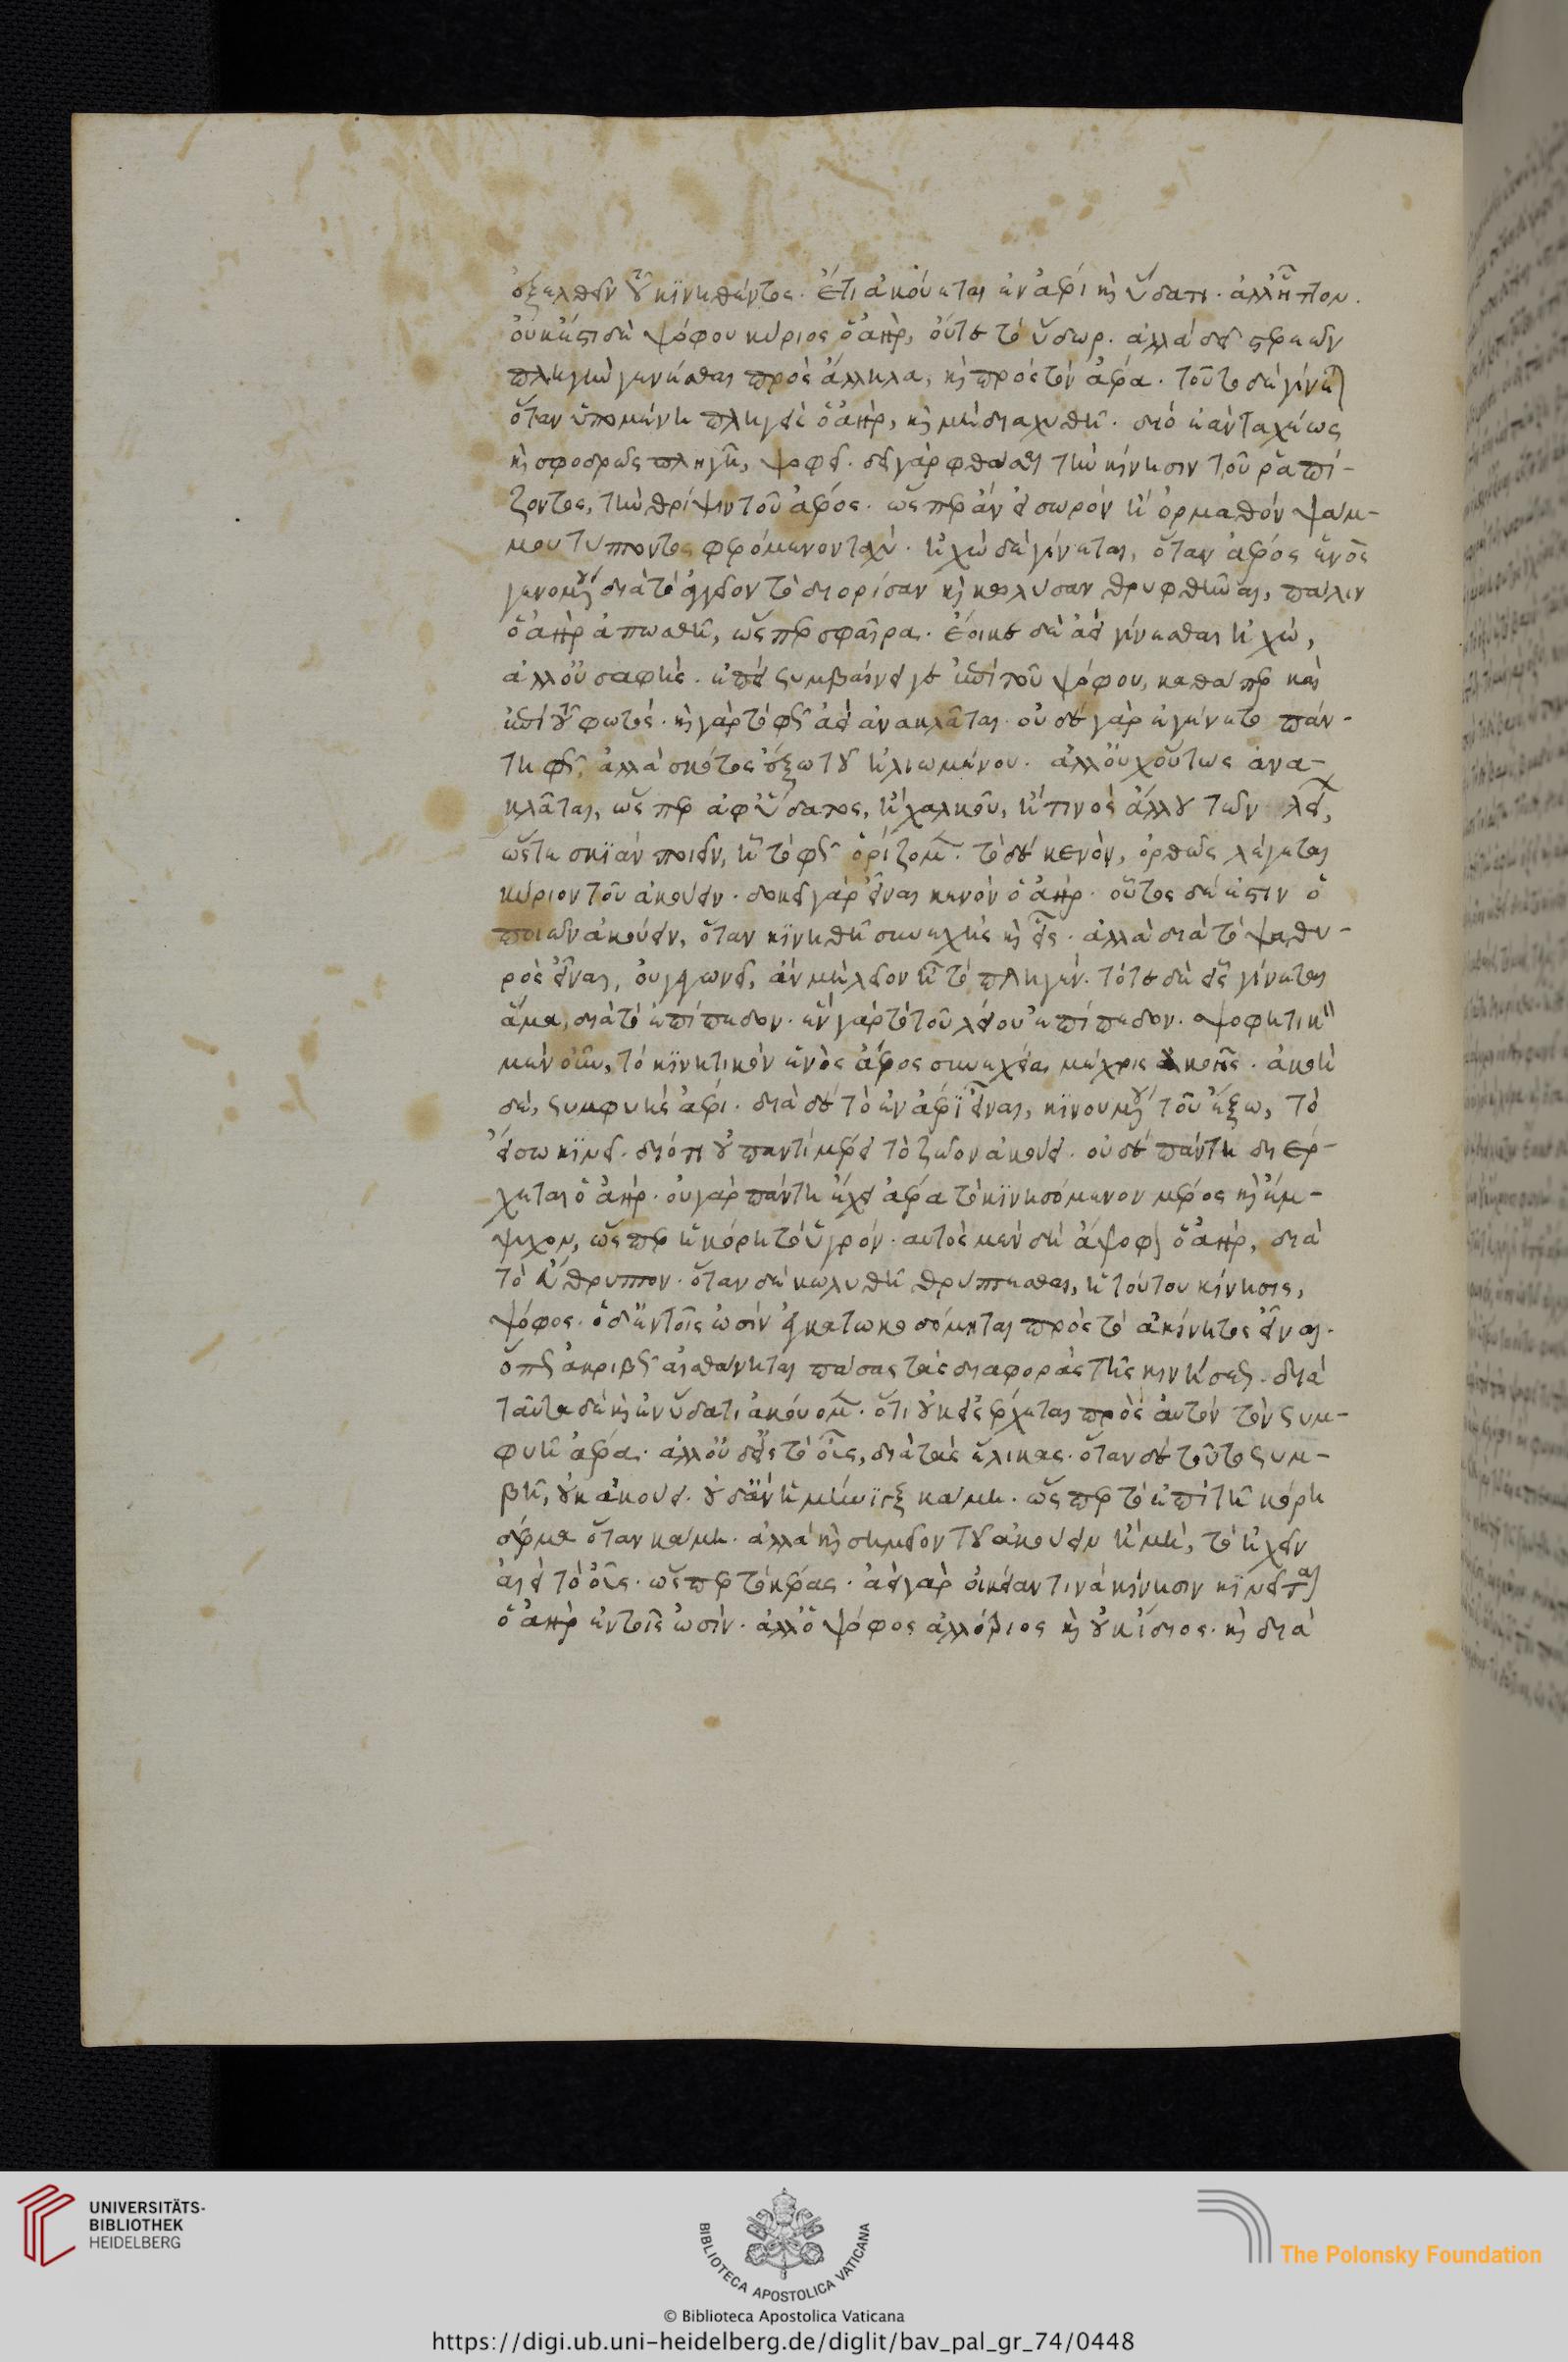 ἐξελθεῖν τοῦ κινηθέντος. ἔτι ἀκούεται ἐν ἀέρι καὶ ὕδατι. ἀλλ' ἧττον.
οὐκ ἔστι δὲ ψόφου κύριος ὁ ἀὴρ, οὔτε τὸ ὕδωρ. ἀλλὰ δεῖ στερεῶν
πληγὴν γενέσθαι πρὸς ἄλληλα, καὶ πρὸς τὸν ἀέρα. τοῦτο δὲ γίνεται
ὅταν ὑπομένη πληγεὶς ὁ ἀὴρ, καὶ μὴ διαχυθῆ. διὸ ἐὰν ταχέως
καὶ σφοδρῶς πληγῆ, ψοφεῖ. δεῖ γὰρ φθάσαι τὴν κίνησιν τοῦ ῥαπί-
ζοντος, τὴν θρίψιν τοῦ ἀέρος. ὥσπερ ἂν εἰ σωρὸν ἢ ὁρμαθὸν ψάμ-
μου τύπτοντος φερόμενον ταχύ. ἠχὼ δὲ γίνεται, ὅταν ἀέρος ἑνὸς
γενομένου διὰ τὸ ἀγγεῖον τὸ διορίσαν καὶ κωλύσαν θρυφθῆναι, πάλιν
ὁ ἀὴρ ἀπωσθῆ, ὥσπερ σφαῖρα. ἔοικε δὲ ἀεὶ γίνεσθαι ἠχὼ,
ἀλλ' οὐ σαφής. ἐπεὶ συμβαίνει γε ἐπὶ τοῦ ψόφου, καθάπερ καὶ
ἐπὶ τοῦ φωτός. καὶ γὰρ τὸ φῶς ἀεὶ ἀνακλᾶται. οὐδὲ γὰρ ἐγένετο πάν-
τη φῶς, ἀλλὰ σκότος ἔξω τοῦ ἡλιωμένου. ἀλλ' οὐχ οὕτως ἀνα-
κλᾶται, ὥσπερ ἀφ' ὕδατος, ἢ χαλκοῦ, ἤ τινος ἄλλου τῶν λείων,
ὥστε σκιὰν ποιεῖν, ἧ τὸ φῶς ὁρίζομεν. τὸ δὲ κενὸν, ὀρθῶς λέγεται
κύριον τοῦ ἀκούειν. δοκεῖ γὰρ εἶναι κενὸν ὁ ἀήρ. οὗτος δέ ἐστιν ὁ
ποιῶν ἀκούειν, ὅταν κινηθῆ συνεχὴς καὶ εἷς. ἀλλὰ διὰ τὸ ψαθυ-
ρὸς εἶναι, οὐ γεγωνεῖ, ἂν μὴ λεῖον ἦ τὸ πληγέν. τότε δὲ εἷς γίνεται
ἅμα, διὰ τὸ ἐπίπεδον. ἓν γὰρ τὸ τοῦ λείου ἐπίπεδον. ψοφητικὸν
μὲν οὖν, τὸ κινητικὸν ἑνὸς ἀέρος συνεχείαι μέχρις ἀκοῆς. ἀκοὴ
δὲ, συμφυὴς ἀέρι. διὰ δὲ τὸ ἐν ἀέρι εἶναι, κινουμένου τοῦ ἔξω, τὸ
εἴσω κινεῖ. διόπερ οὐ παντὶ μέρει τὸ ζῶον ἀκούει. οὐδὲ πάντη διέρ-
χεται ὁ ἀήρ. οὐ γὰρ πάντη ἔχει ἀέρα τὸ κινησόμενον μέρος καὶ ἔμ-
ψυχον, ὥσπερ ἡ κόρη τὸ ὑγρόν. αὐτὸς μὲν δὴ ἄψοφος ὁ ἀὴρ, διὰ
τὸ εὔθρυπτον. ὅταν δὲ κωλυθῆ θρύπτεσθαι, ἡ τούτου κίνησις,
ψόφος. ὁ δ' ἐν τοῖς ὠσὶν ἐγκατωκοδόμηται πρὸς τὸ ἀκίνητος εἶναι.
ὅπως ἀκριβῶς αἰσθάνηται πάσας τὰς διαφορὰς τῆς κινήσεως. διὰ
ταῦτα δὲ καὶ ἐν ὕδατι ἀκούομεν. ὅτι οὐκ εἰσέρχεται πρὸς αὐτὸν τὸν συμ-
φυῆ ἀέρα. ἀλλ' οὐδ' εἰς τὸ οὖς, διὰ τὰς ἕλικας. ὅταν δὲ τοῦτο συμ-
βῆ, οὐκ ἀκούει. οὐδ' ἂν ἡ μήνιγξ κάμη. ὥσπερ τὸ ἐπὶ τῆ κόρη
δέρμα ὅταν κάμη. ἀλλὰ καὶ σημεῖον τοῦ ἀκούειν ἢ μὴ, τὸ ἠχεῖν
ἀεὶ τὸ οὖς. ὥσπερ τὸ κέρας. ἀεὶ γὰρ οἰκείαν τινὰ κίνησιν κινεῖται
ὁ ἀὴρ ἐν τοῖς ὠσίν. ἀλλ' ὁ ψόφος ἀλλότριος καὶ οὐκ ἴδιος. καὶ διὰ
UNIVERSITÄTS-
BIBLIOTHEK
HEIDELBERG
BIBLIOTECA APOSTOLICA VATICANA
The Polonsky Foundation
© Biblioteca Apostolica Vaticana
https://digi.ub.uni-heidelberg.de/diglit/bav_pal_gr_74/0448